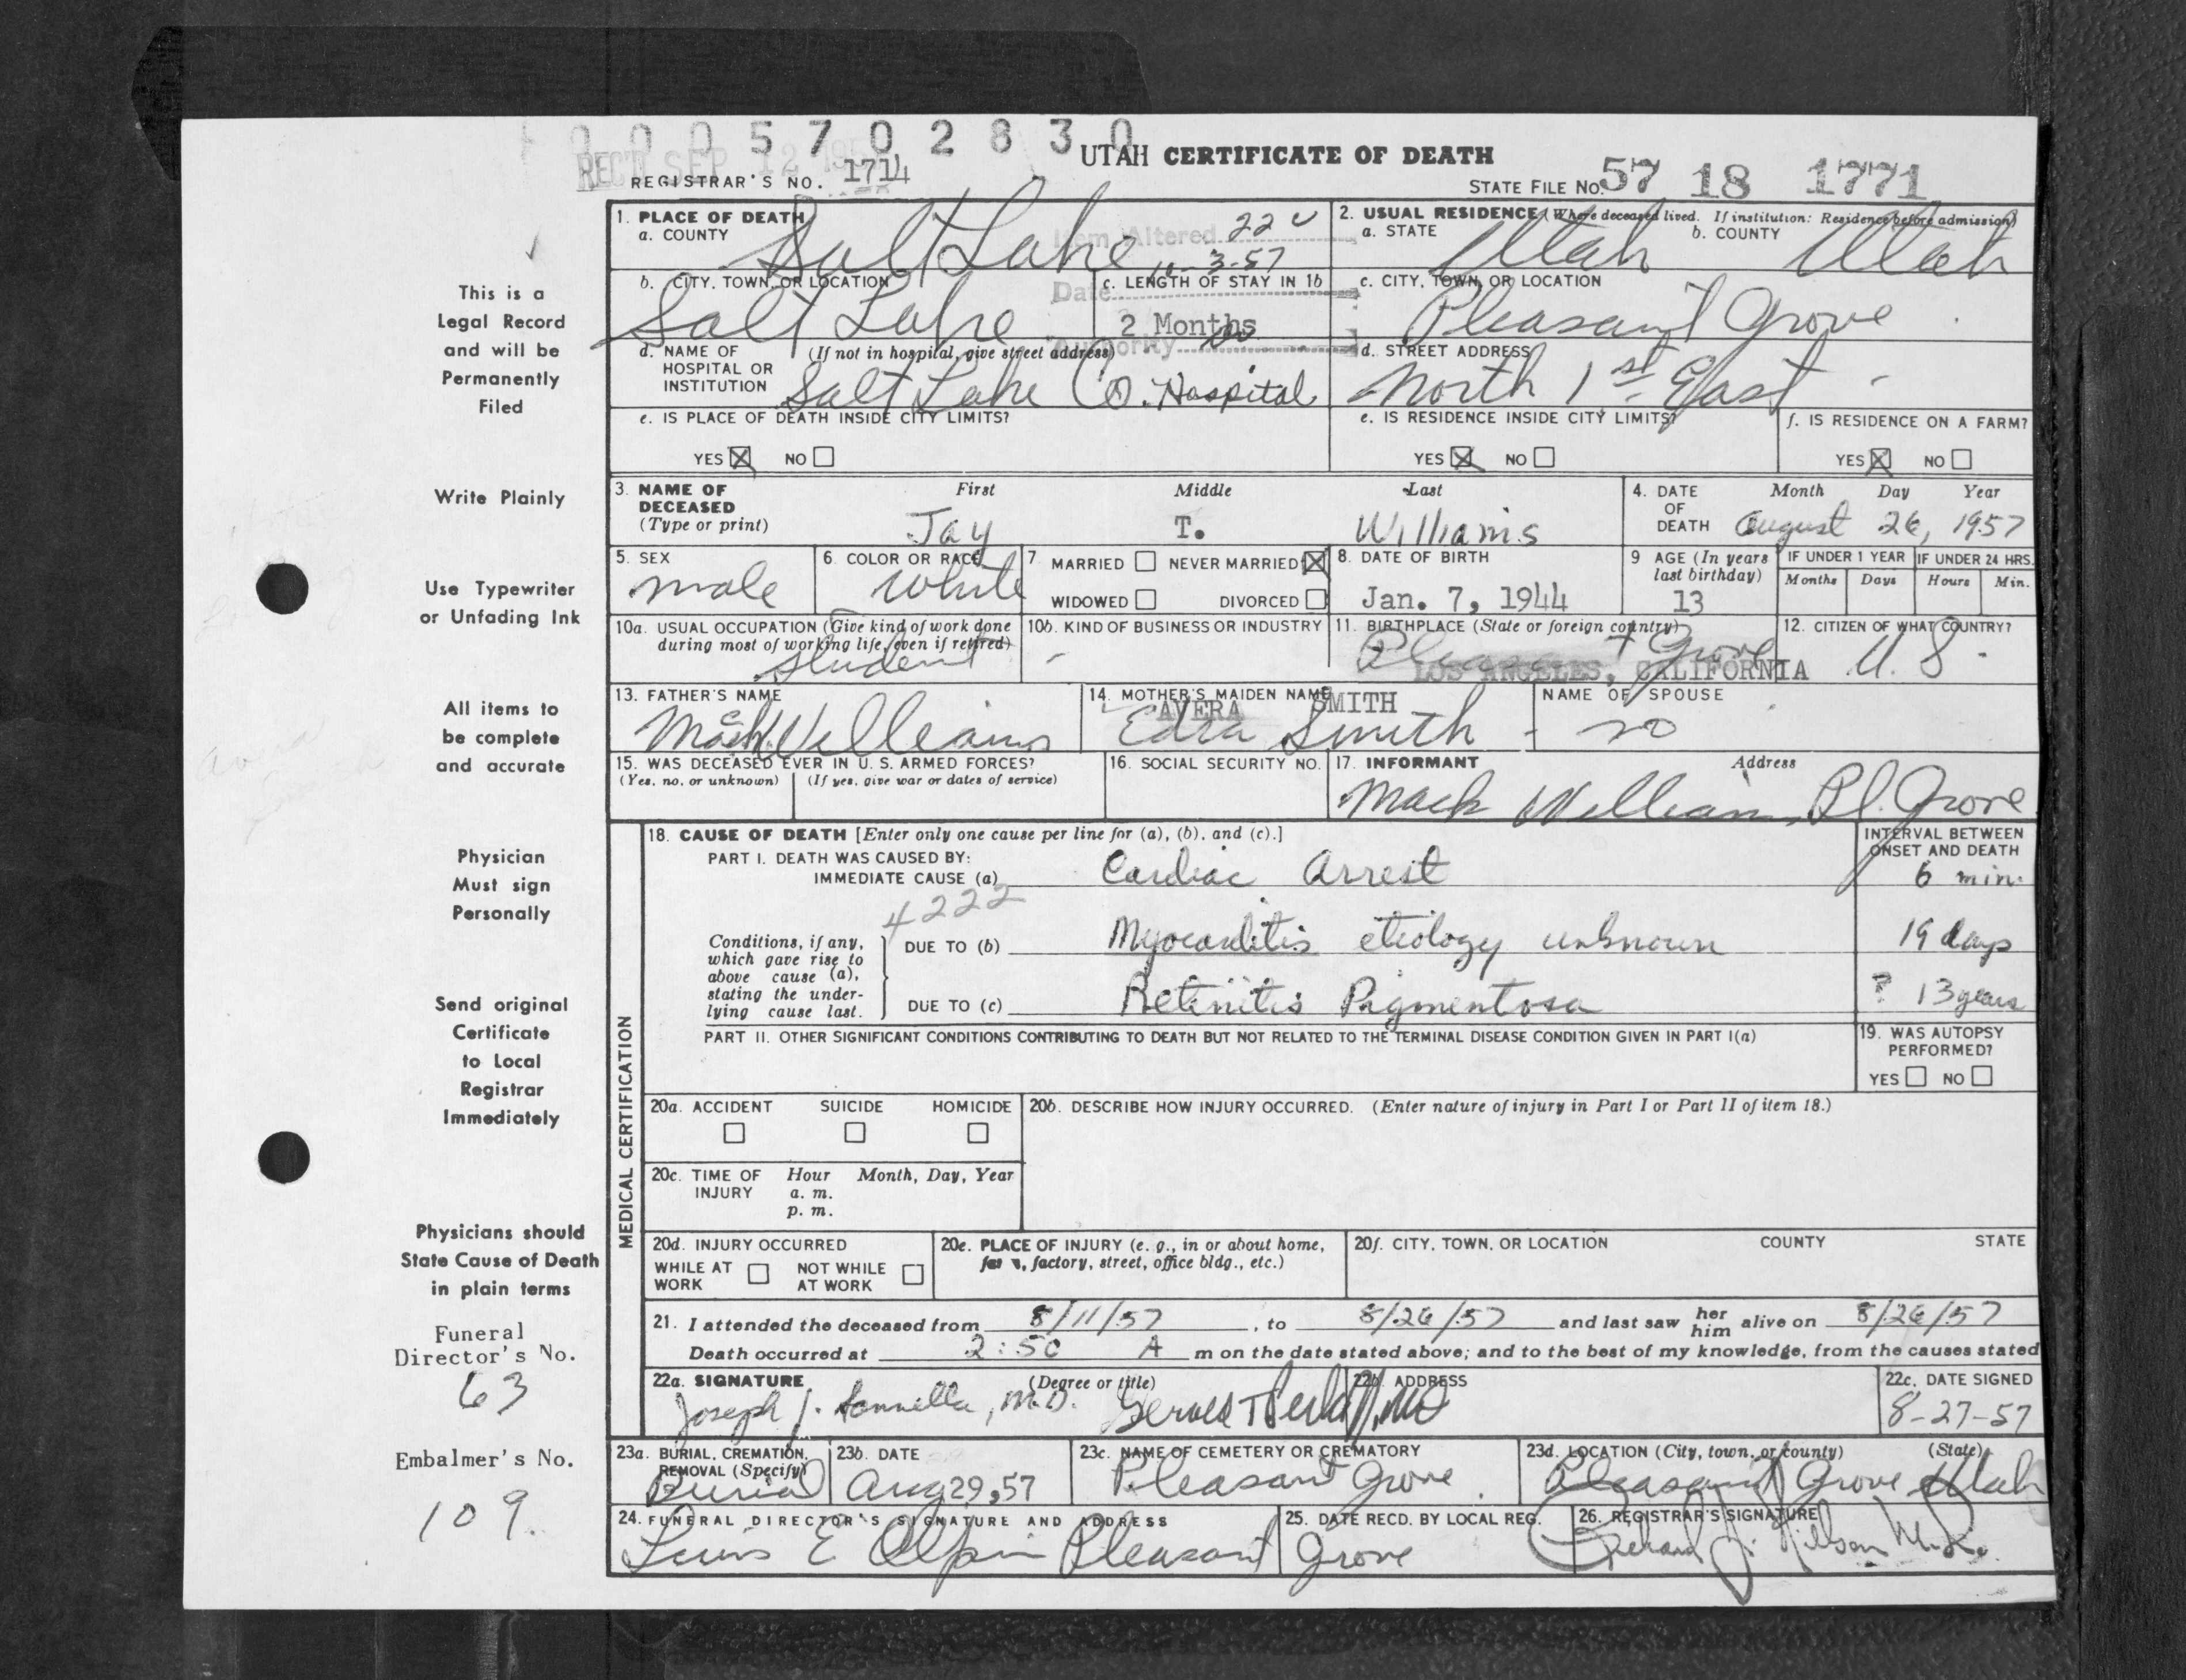 0005702830
REC'D SEP 12 195
UTAH CERTIFICATE OF DEATH
REGISTRAR'S NO. 1714
STATE FILE NO. 57 18 1771
1. PLACE OF DEATH
a. COUNTY Salt Lake
Item Altered 22
10-3-57
Date
Authority
2. USUAL RESIDENCE (Where deceased lived. If institution: Residence before admission)
a. STATE Utah b. COUNTY Utah
b. CITY, TOWN, OR LOCATION Salt Lake
c. LENGTH OF STAY IN 1b 2 Months
c. CITY, TOWN, OR LOCATION Pleasant Grove
d. NAME OF HOSPITAL OR INSTITUTION (If not in hospital, give street address) Salt Lake Co. Hospital
d. STREET ADDRESS North 1st East
e. IS PLACE OF DEATH INSIDE CITY LIMITS?
YES ☒ NO ☐
e. IS RESIDENCE INSIDE CITY LIMITS?
YES ☒ NO ☐
f. IS RESIDENCE ON A FARM?
YES ☒ NO ☐
3. NAME OF DECEASED (Type or print)
First Middle Last
Jay T. Williams
4. DATE OF DEATH Month Day Year
August 26, 1957
5. SEX male
6. COLOR OR RACE White
7 MARRIED ☐ NEVER MARRIED ☒
WIDOWED ☐ DIVORCED ☐
8. DATE OF BIRTH Jan. 7, 1944
9 AGE (In years last birthday) 13
IF UNDER 1 YEAR Months Days
IF UNDER 24 HRS. Hours Min.
10a. USUAL OCCUPATION (Give kind of work done during most of working life, even if retired) student
10b. KIND OF BUSINESS OR INDUSTRY -
11. BIRTHPLACE (State or foreign country) Pleasant Grove
LOS ANGELES, CALIFORNIA
12. CITIZEN OF WHAT COUNTRY? U.S.
13. FATHER'S NAME Mack Williams
14. MOTHER'S MAIDEN NAME AVERA SMITH
Edra Smith
NAME OF SPOUSE no
15. WAS DECEASED EVER IN U.S. ARMED FORCES?
(Yes, no, or unknown) (If yes, give war or dates of service)
16. SOCIAL SECURITY NO.
17. INFORMANT Address
Mack Williams, Pl. Grove
MEDICAL CERTIFICATION
18. CAUSE OF DEATH [Enter only one cause per line for (a), (b), and (c).]
INTERVAL BETWEEN ONSET AND DEATH
PART I. DEATH WAS CAUSED BY:
IMMEDIATE CAUSE (a) Cardiac Arrest 6 min.
4222
Conditions, if any, which gave rise to above cause (a), stating the underlying cause last.
DUE TO (b) Myocarditis etiology unknown 19 days
DUE TO (c) Retinitis Pigmentosa ? 13 years
PART II. OTHER SIGNIFICANT CONDITIONS CONTRIBUTING TO DEATH BUT NOT RELATED TO THE TERMINAL DISEASE CONDITION GIVEN IN PART I(a)
19. WAS AUTOPSY PERFORMED?
YES ☐ NO ☐
20a. ACCIDENT SUICIDE HOMICIDE
☐ ☐ ☐
20b. DESCRIBE HOW INJURY OCCURRED. (Enter nature of injury in Part I or Part II of item 18.)
20c. TIME OF INJURY Hour Month, Day, Year
a. m.
p. m.
20d. INJURY OCCURRED
WHILE AT WORK ☐ NOT WHILE AT WORK ☐
20e. PLACE OF INJURY (e. g., in or about home, farm, factory, street, office bldg., etc.)
20f. CITY, TOWN, OR LOCATION COUNTY STATE
21. I attended the deceased from 8/11/57, to 8/26/57 and last saw her him alive on 8/26/57
Death occurred at 2:50 A m on the date stated above; and to the best of my knowledge, from the causes stated
22a. SIGNATURE (Degree or title)
Joseph J. M.D.
22b. ADDRESS
22c. DATE SIGNED 8-27-57
23a. BURIAL, CREMATION, REMOVAL (Specify) Burial
23b. DATE Aug 29, 57
23c. NAME OF CEMETERY OR CREMATORY Pleasant Grove
23d. LOCATION (City, town, or county) (State) Pleasant Grove Utah
24. FUNERAL DIRECTOR'S SIGNATURE AND ADDRESS
Lewis E Olpin Pleasant Grove
25. DATE RECD. BY LOCAL REG.
26. REGISTRAR'S SIGNATURE
Richard J. Nilson M.D.
This is a
Legal Record
and will be
Permanently
Filed
Write Plainly
Use Typewriter
or Unfading Ink
All items to
be complete
and accurate
Physician
Must sign
Personally
Send original
Certificate
to Local
Registrar
Immediately
Physicians should
State Cause of Death
in plain terms
Funeral
Director's No.
63
Embalmer's No.
109.